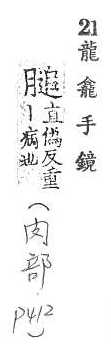 21 龍龕手鏡
膇 直偽反重
丨病也
(肉部
P412)